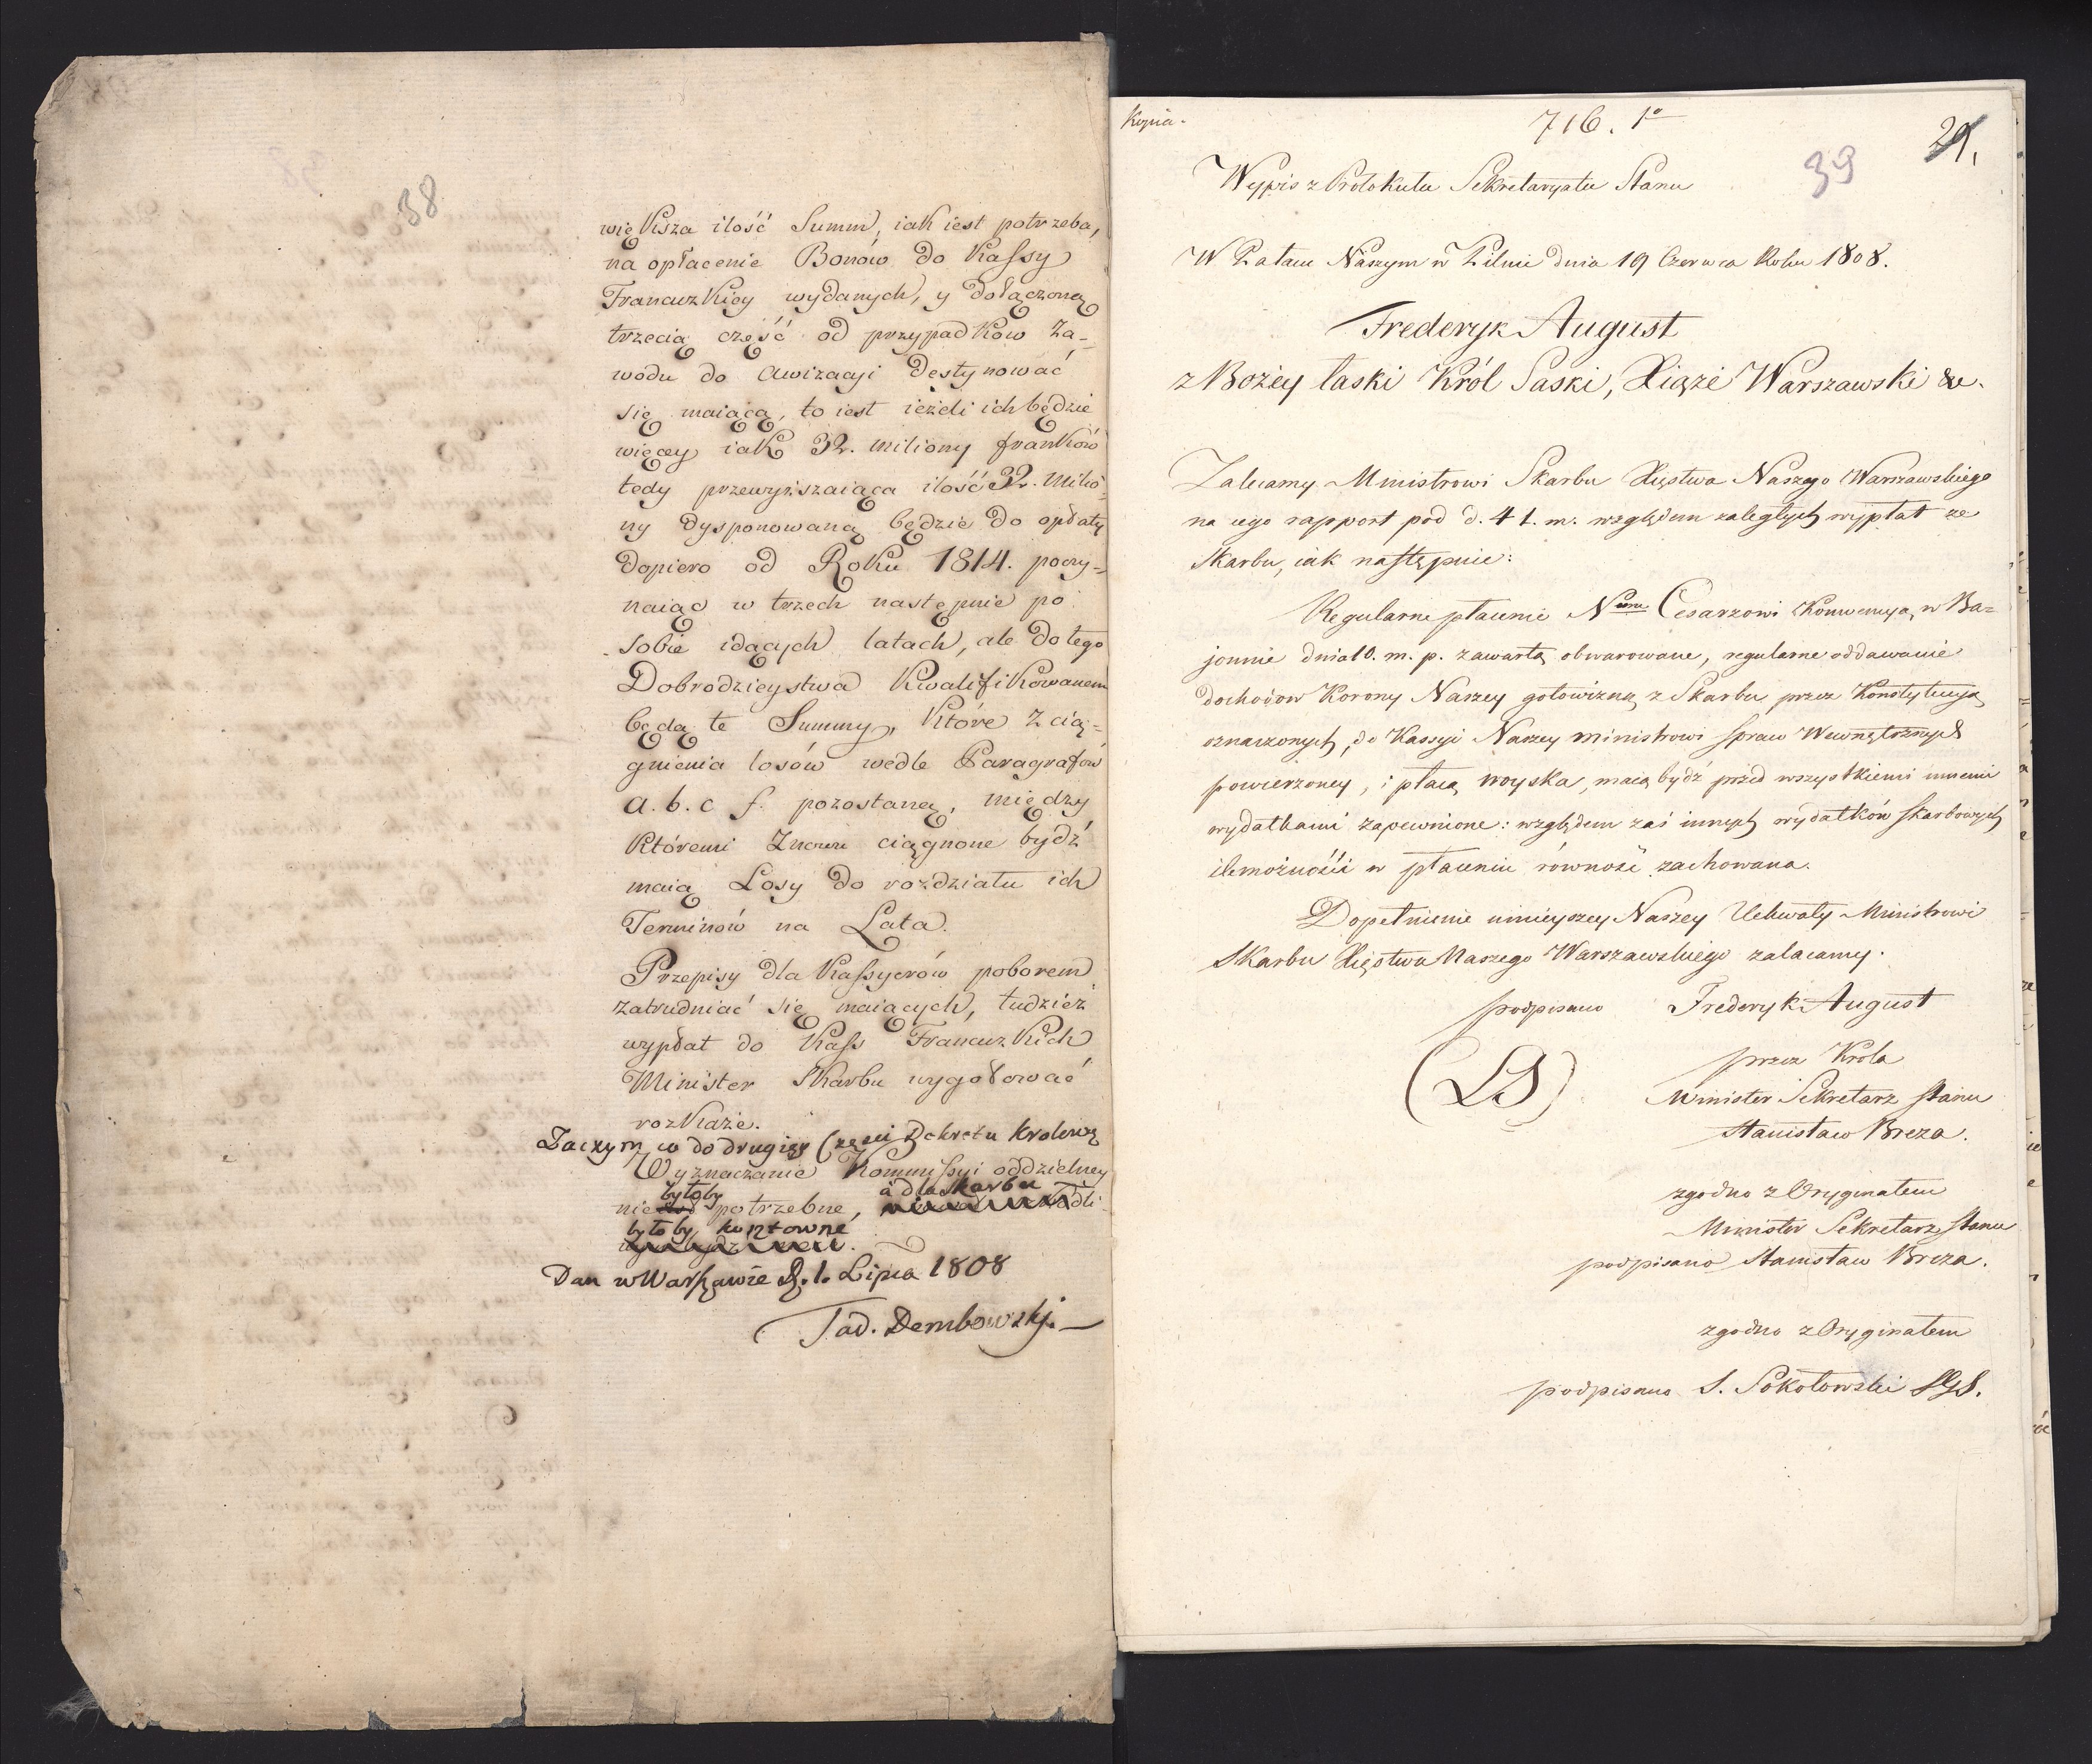 38
więKsza ilość Summ, iak iest potrzeba,
na opłacenie Bonów do Kassy
FrancuzKiey wydanych, y dołączoną
trzecią część od przypadKów Za-
wodu do awizacyi destynować
się maiącą, to iest ieżeli ich będzie
więcey iaK 32. miliony franków
tedy przewyższaiąca ilość 32. Milio-
ny dysponowaną będzie do opłaty
dopiero od RoKu 1814. poczy-
naiąc w trzech następnie po
sobie idących latach, ale do tego
Dobrodzieystwa KwalifiKowanem
będą te Summy, Które z cią-
gnienia losów wedle Paragrafów
a. b. c f. pozostaną, między
Któremi Znowu ciągnone bydź
maią Losy do rozdziału ich
Terminów na Lata.
Przepisy dla Kassyerów poborem
zatrudniać się maiących, tudzież
wypłat do Kass FrancuzKich
Minister SKarbu wygotować
rozKaże.
Zaczym co do drugiey Części Dekretu Krolewg
Wyznaczanie Kommissyi oddzielney
byłoby a dla skarbu
nie potrzebne,
byłoby kosztowne
Dan w Warszawie d. 1. Lipca 1808
Tad. Dembowski.
Kopia.
716. 1º
29.
39
Wypis z Protokułu Sekretaryatu Stanu
W Pałacu Naszym w Pilnic dnia 19 Czerwca Roku 1808.
Frederyk August
z Bożey łaski Król Saski, Xiąże Warszawski &c.
Zalecamy Ministrowi Skarbu Xięstwa Naszego Warszawskiego
na iego rapport pod d. 4 t. m. względem zaległych wypłat ze
Skarbu, iak następnie:
Regularne płacenie Nmu Cesarzowi Konwencyą w Ba=
jonnie dnia 10. m. p. zawartą obwarowane, regularne oddawanie
dochodów Korony Naszey gotowizną z Skarbu przez Konstytucyą
oznaczonych, do Kassyi Naszey Ministrowi Spraw Wewnętrznych
powierzoney, i płacą woyska, maią bydź przed wszystkiemi innemi
wydatkami zapewnione: względem zaś innych wydatków skarbowych
ile możności w płaceniu równość zachowana.
Dopełnienie ninieyszey Naszey Uchwały Ministrowi
Skarbu Xięstwa Naszego Warszawskiego zalacamy.
podpisano Frederyk August
przez Króla
(LS)
Minister Sekretarz Stanu
Stanisław Breza.
zgodno z Oryginałem
Minister Sekretarz Stanu
podpisano Stanisław Breza.
zgodno z Oryginałem
podpisano S. Sokołowski